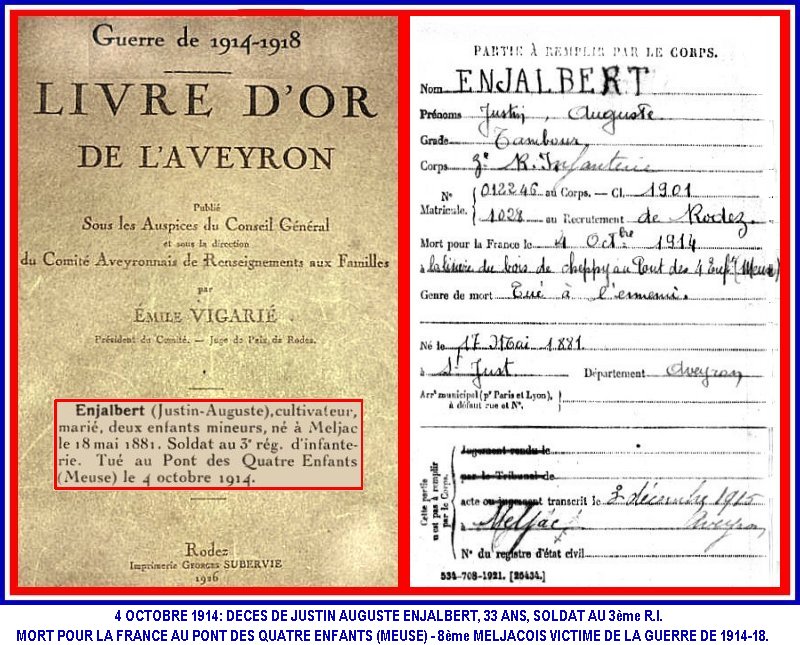 Guerre de 1914-1918
LIVRE D'OR
DE L'AVEYRON
Publié
Sous les Auspices du Conseil Général
et sous la direction
du Comité Aveyronnais de Renseignements aux Familles
par
ÉMILE VIGARIÉ
Président du Comité. — Juge de Paix de Rodez.
Enjalbert (Justin-Auguste), cultivateur,
marié, deux enfants mineurs, né à Meljac
le 18 mai 1881. Soldat au 3e rég. d'infante-
rie. Tué au Pont des Quatre Enfants
(Meuse) le 4 octobre 1914.
Rodez
Imprimerie GEORGES SUBERVIE
1926
PARTIE À REMPLIR PAR LE CORPS.
Nom ENJALBERT
Prénoms Justin, Auguste
Grade Tambour
Corps 3e R. Infanterie
N° Matricule. 012246 au Corps. — Cl. 1901
1028 au Recrutement de Rodez.
Mort pour la France le 4 Octbre 1914
à la lisière du bois de cheppy au Pont des 4 Enfts (Meuse)
Genre de mort Tué à l'ennemi.
Né le 17 Mai 1881
à St Just Département Aveyron
Arrt municipal (pr Paris et Lyon), à défaut rue et N°.
Cette partie n'est pas à remplir par le Corps.
Jugement rendu le
par le Tribunal de
acte ou jugement transcrit le 2 décembre 1915
à Meljac Aveyron
N° du registre d'état civil
534-708-1921. [26434.]
4 OCTOBRE 1914: DECES DE JUSTIN AUGUSTE ENJALBERT, 33 ANS, SOLDAT AU 3ème R.I.
MORT POUR LA FRANCE AU PONT DES QUATRE ENFANTS (MEUSE) - 8ème MELJACOIS VICTIME DE LA GUERRE DE 1914-18.